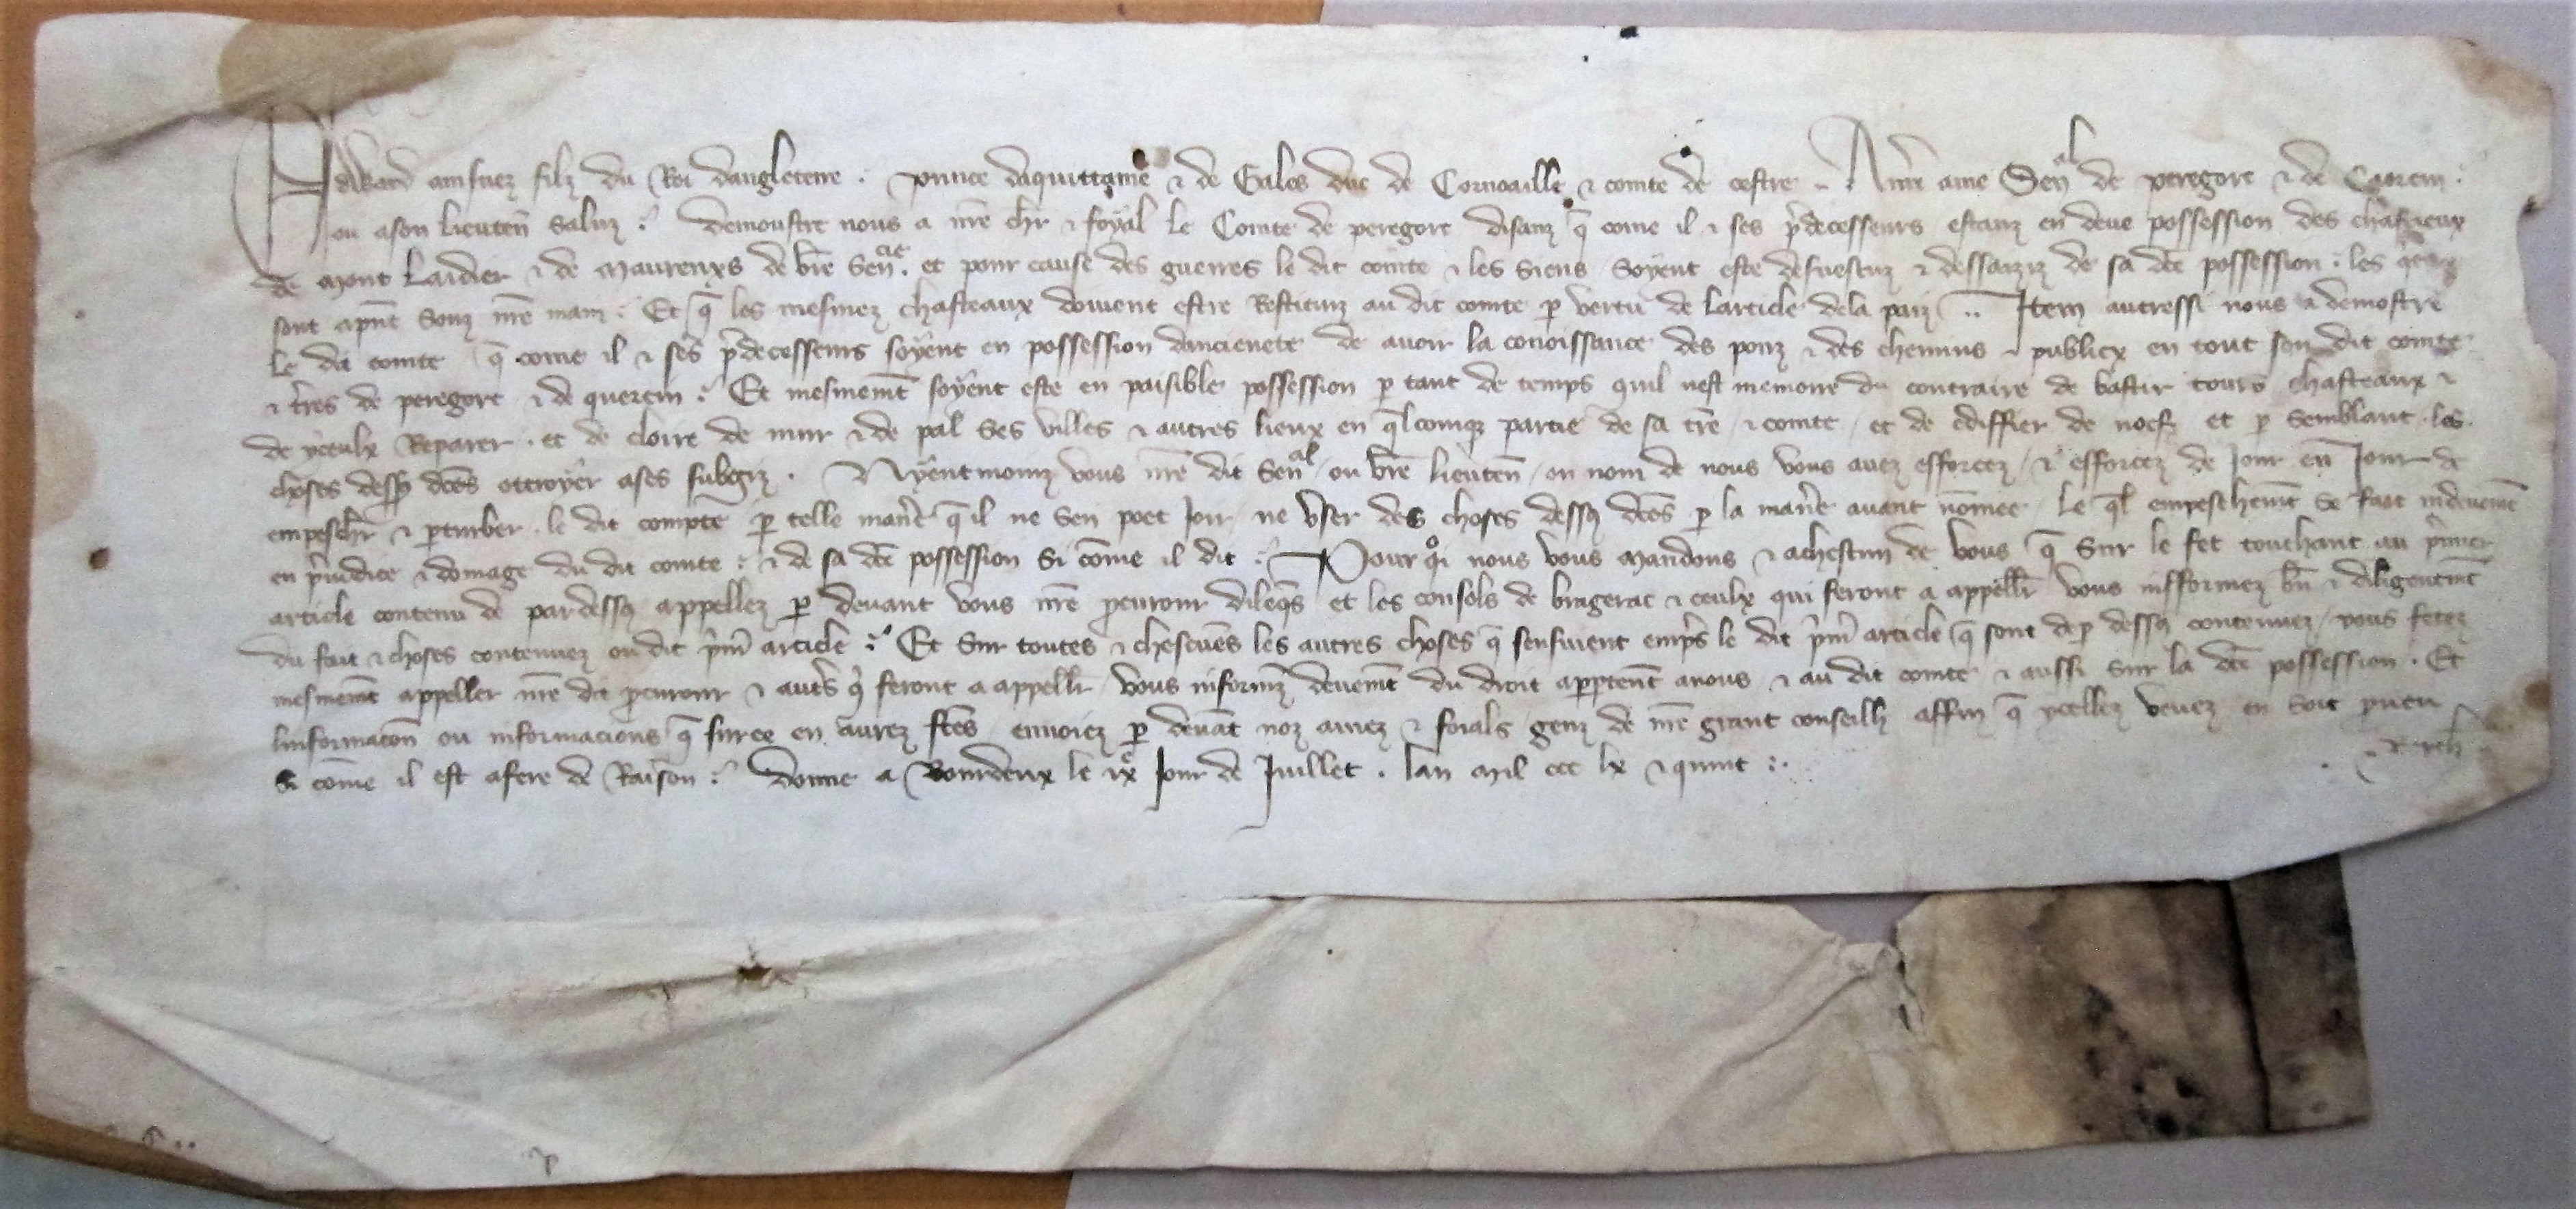 Edward ainsnez filz du Roi dangleterre . prince daquittaine & de Gales duc de Cornoaille & comte de cestre .. A nr̄e ame Sen̄al de peregore & de Caorcin :
ou a son lieuten̄ Saluz : demoustre nous a nr̄e ch̄r & foyal le Comte de peregore disanz q̄ come il & ses p̄decesseurs estanz en deue possession des chasteux
de mont Laidier & de Maurenxs de vr̄e Sen̄cie . et pour cause des guerres le dit comte & les Siens Soyent este desuestuz & dessaiziz de sa dc̄e possession : les
sont apn̄t Souz nr̄e main : Et q̄ les mesmez chasteaux doiuent estre Restituz au dit comte p vertu de larticle dela paiz .. Item autressi nous a demostre
le dit comte q̄ come il & ses p̄decesseurs soyent en possession dancienete de auoir la conoissance des ponz & des chemins & publicx en tout son dit comte
& tr̄es de peregore & de quercin : Et mesmemt̄ soyent este en paisible possession p tant de temps quil nest memoire du contraire de bastir tours chasteaux &
de yceulx Reparer . et de cloire de mur & de pal Ses villes & autres lieux en ql̄comqz partie de sa tr̄e & comte / et de ediffier de noef et p Semblant . les
choses dess9 dc̄es ottroyer a ses subgiz . Nyentmoinz vous nr̄e dit Sen̄al / ou vr̄e lieuten̄ / ou nom de nous vous auez efforcez / & efforcez de Jour en Jour de
empeschr̄ & pturber . le dit compte p telle man̄e q̄ il ne Sen poet Joir ne vser des choses dess9 dc̄es p la man̄e auant nōmee / Le ql̄ empeschemt̄ Se fait indeuemt̄
en p̄iudice & domage du dit comte : & de sa dc̄e possession Si cōme il dit : Pour qoi nous vous mandons & achescun de vous q̄ Sur le fet touchant au p̄imer
article contenu de par dess9 appellez p deuant vous nr̄e pcurour et les consols de bragerac & ceulx qui feront a appellr̄ vous infformez bn̄ & diligentemt̄
du fait & choses contenuez ou dit p̄im̄ article : Et Sur toutes & chescuēs les autres choses q̄ sensuient emp̄s le dit p̄im̄ article q̄ sont dep dess9 contenuez / vous fetez
mesmemt̄ appeller nr̄e dit pcurour & aut̄s qi feront a appellr̄ vous informz̄ deuemt̄ du droit apptent̄ anous & au dit comte & aussi Sur la dc̄e possession . Et
linformacōn ou informacions q̄ surce en aurez ftēs enuoiez p deuāt noz amez & foials genz de nr̄e grant conseilh affin q̄ ycellez veuez en Soit pueu
Si cōme il est afere de Raison : donne a Bourdeux le ixe Jour de Juillet . lan mil ccc lx & quint :.